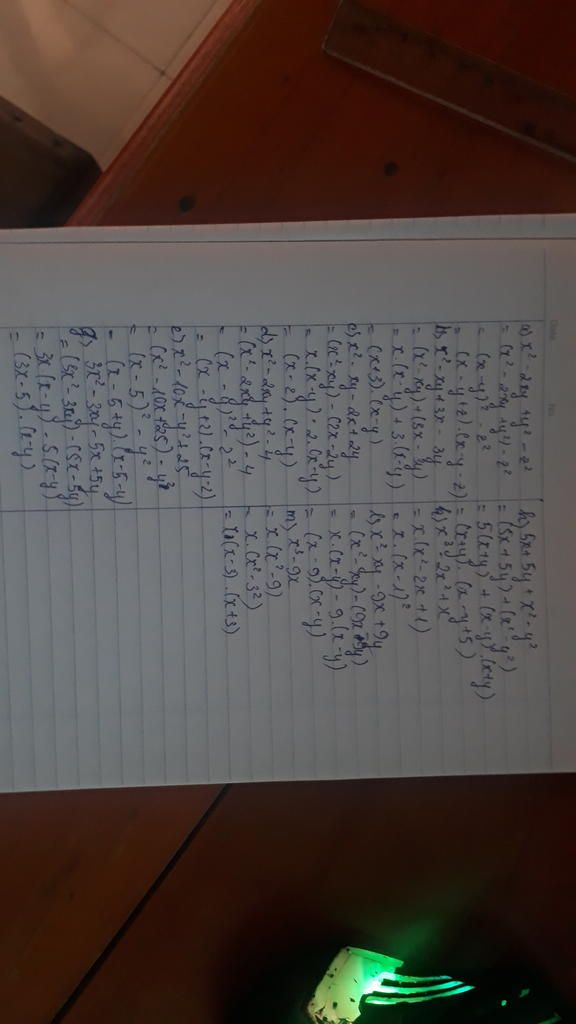 Date No.
a) x² - 2xy + y² - z²
= (x² - 2xy + y²) - z²
= (x - y)² - z²
= (x - y + z) . (x - y - z)
b) x² - xy + 3x - 3y
= (x² - xy) + (3x - 3y)
= x (x - y) + 3 (x - y)
= (x + 3) . (x - y)
c) x² - xy - 2x + 2y
= (x² - xy) - (2x - 2y)
= x . (x - y) - 2 (x - y)
= (x - 2) . (x - y)
d) x² - 2xy + y² - 4
= (x² - 2xy + y²) - 4
= (x - y)² - 2²
= (x - y + 2) . (x - y - 2)
e) x² - 10x - y² + 25
= (x² - 10x + 25) - y²
= (x - 5)² - y²
= (x - 5 + y) . (x - 5 - y)
g) 3x² - 3xy - 5x + 5y
= (3x² - 3xy) - (5x - 5y)
= 3x (x - y) - 5 (x - y)
= (3x - 5) . (x - y)
h) 5x + 5y + x² - y²
= (5x + 5y) + (x² - y²)
= 5 (x + y) + (x - y) . (x + y)
= (x + y) . (x - y + 5)
x³ - 2x² + x
= x (x² - 2x + 1)
= x (x - 1)²
l) x² - xy - 9x + 9y
= (x² - xy) - (9x - 9y)
= x . (x - y) - 9 . (x - y)
= (x - 9) . (x - y)
m) x³ - 9x
= x (x² - 9)
= x . (x² - 3²)
= x (x - 3) . (x + 3)